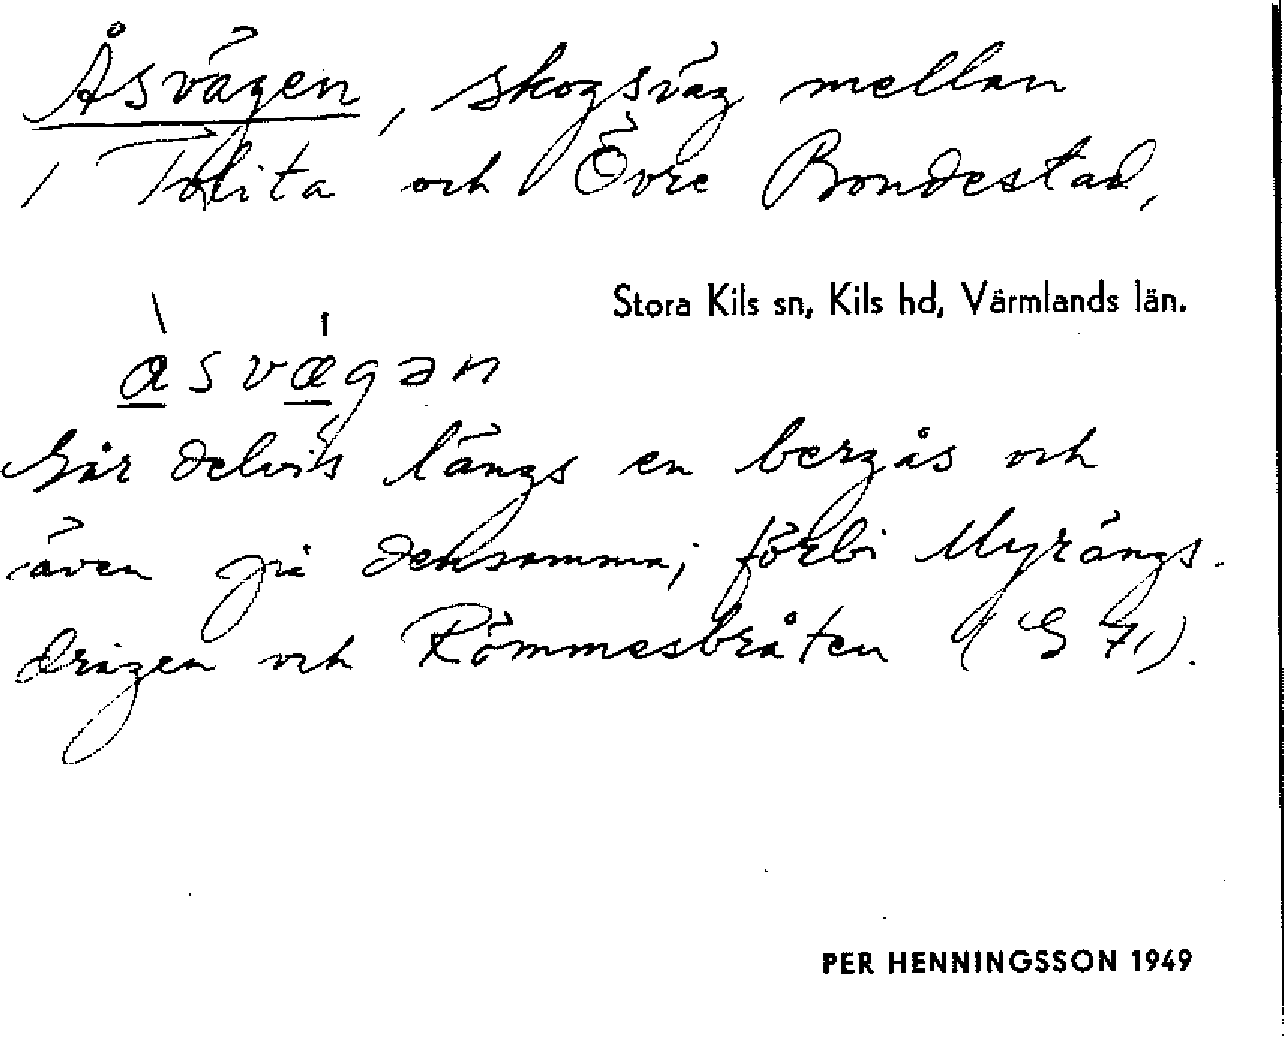 Åsvägen, skogsväg mellan
Tolita och Övre Bondestad,
Stora Kils sn, Kils hd, Värmlands län.
går delvis längs en bergås och
även på densamma; förbi Myrängs-
drågen och Römmesbråten (G 71).
PER HENNINGSSON 1949